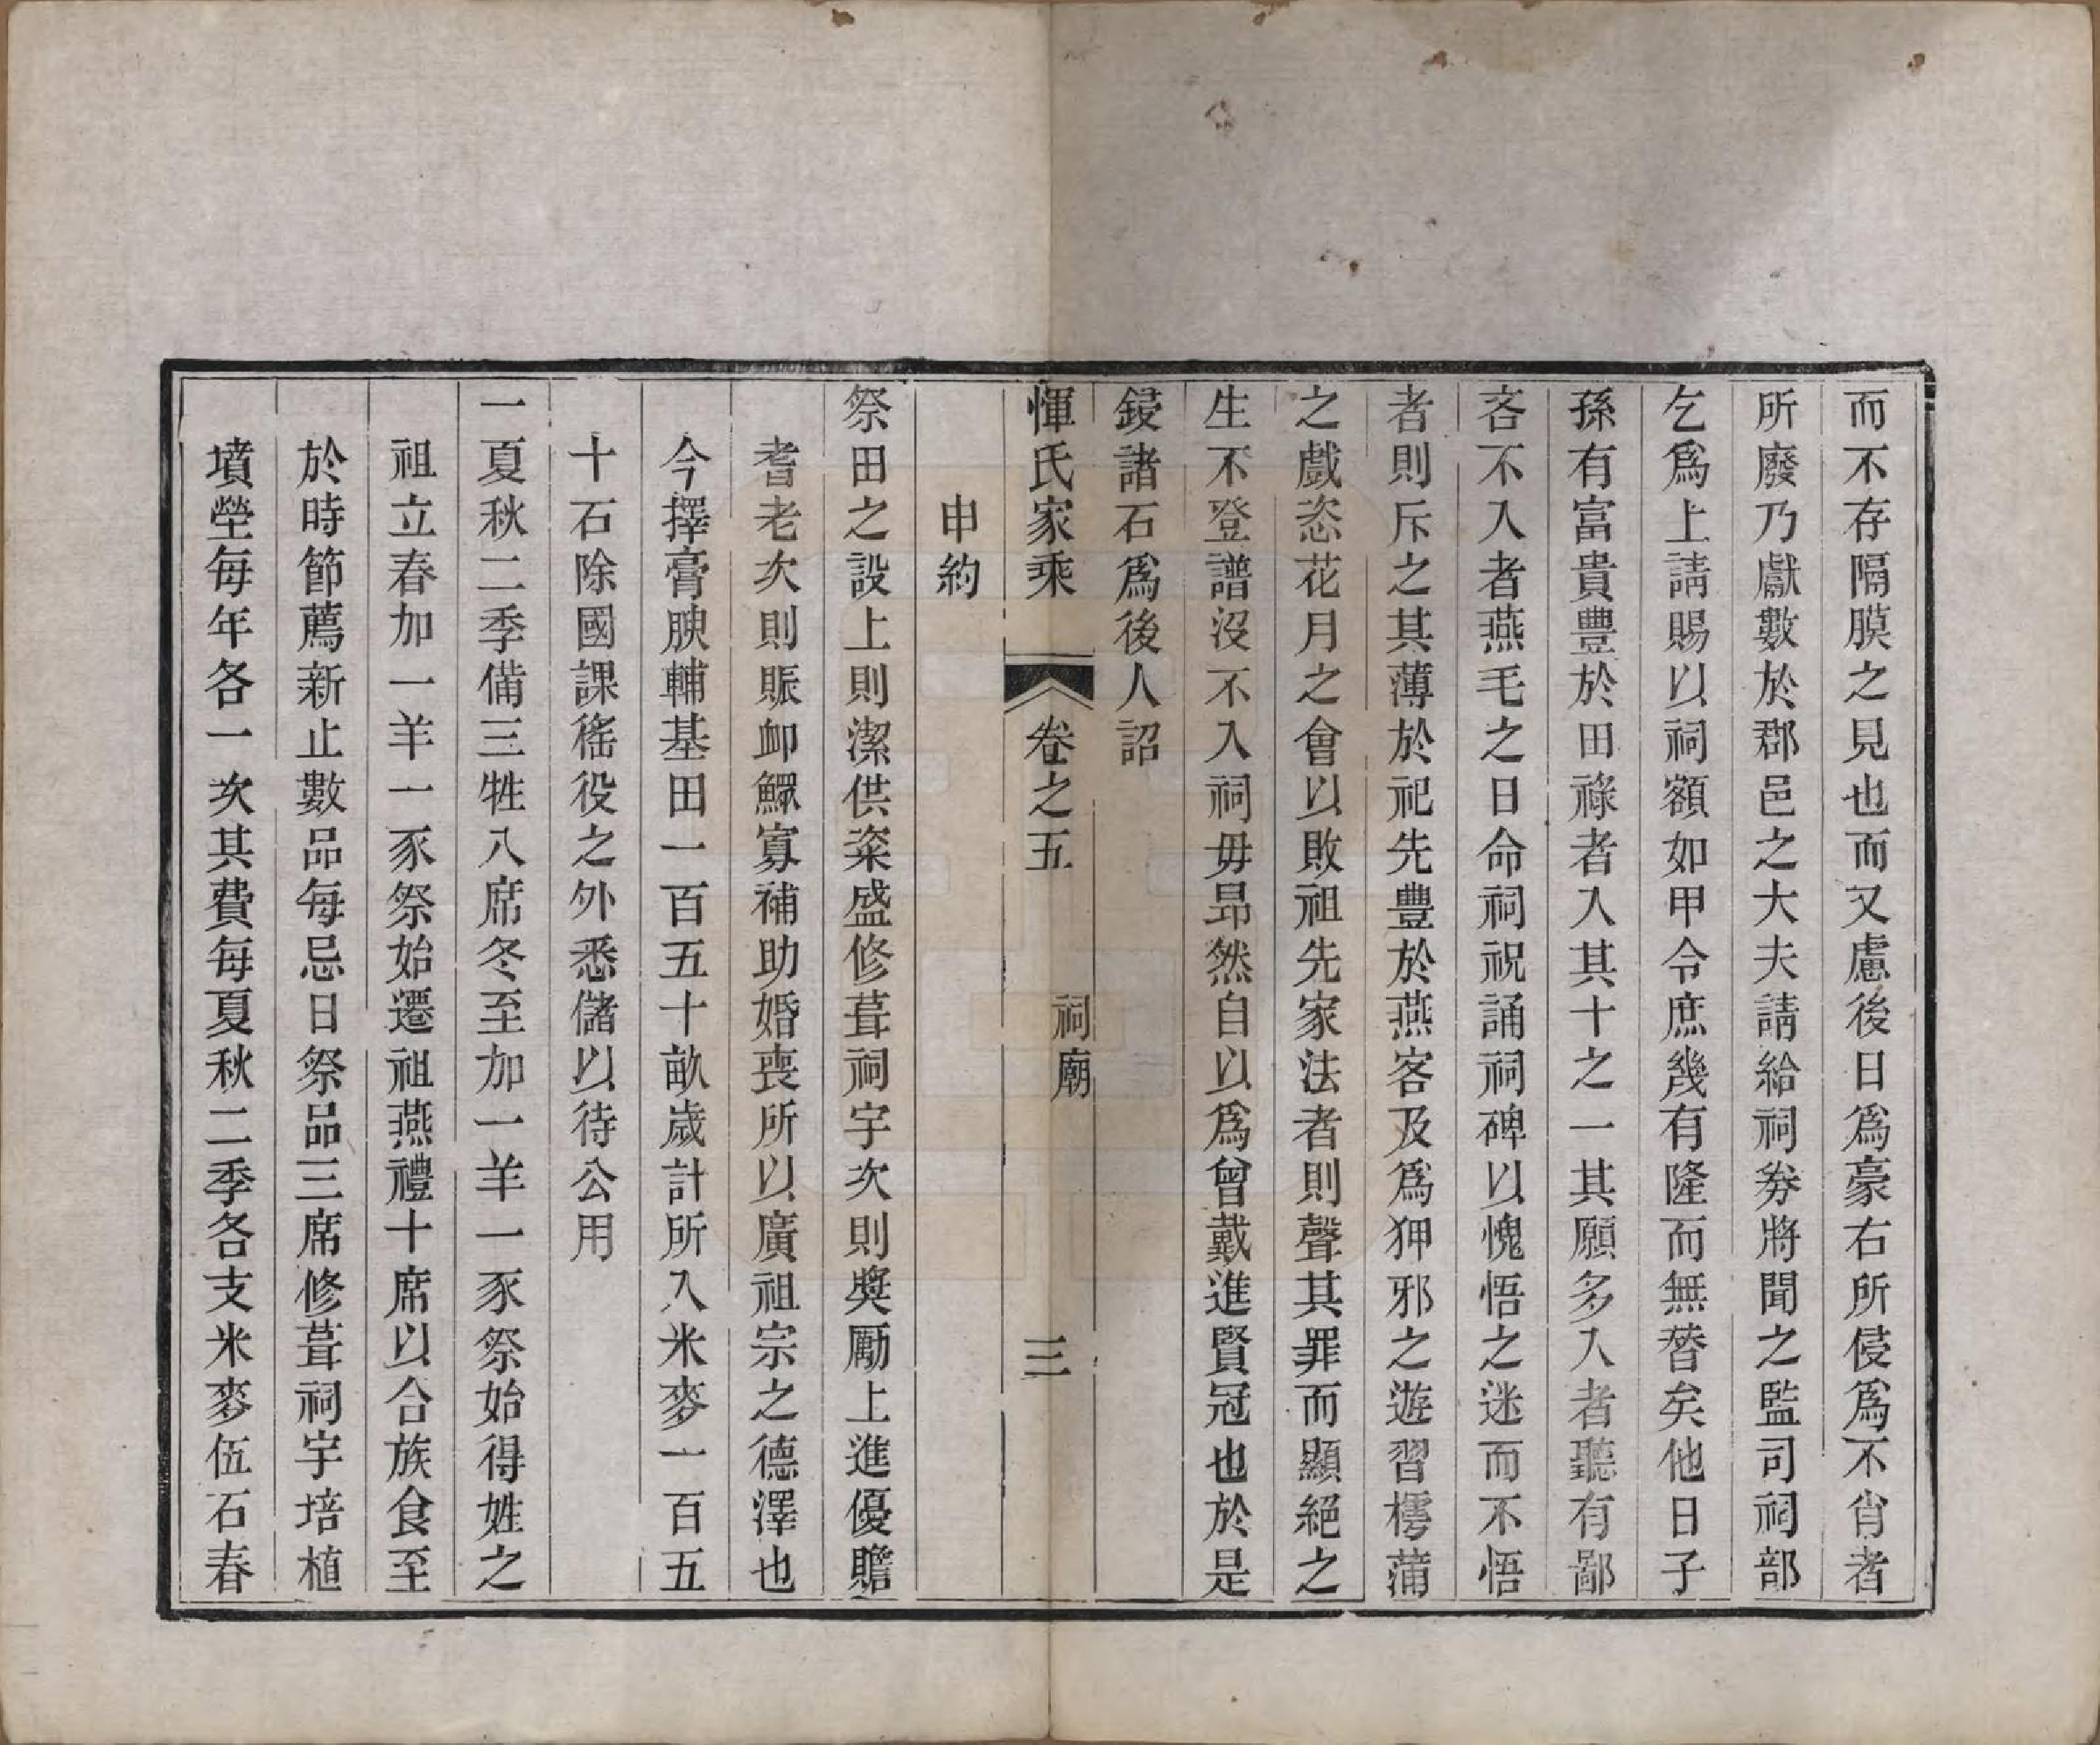 而不存隔膜之見也而又慮後日爲豪右所侵爲不肖者
所廢乃獻數於郡邑之大夫請給祠券將聞之監司祠部
乞爲上請賜以祠額如甲令庶幾有隆而無替矣他日子
孫有富貴豐於田祿者入其十之一其願多入者聽有鄙
吝不入者燕毛之日命祠祝誦祠碑以愧悟之迷而不悟
者則斥之其薄於祀先豐於燕客及爲狎邪之遊習樗蒲
之戲恣花月之會以敗祖先家法者則聲其罪而顯絕之
生不登譜沒不入祠毋昂然自以爲曾戴進賢冠也於是
鋟諸石爲後人詔
惲氏家乘 卷之五 祠廟 三
申約
祭田之設上則潔供粢盛修葺祠宇次則奬勵上進優贍
耆老次則賑卹鰥寡補助婚喪所以廣祖宗之德澤也
今擇膏腴輔基田一百五十畝歲計所入米麥一百五
十石除國課徭役之外悉儲以待公用
一夏秋二季備三牲八席冬至加一羊一豕祭始得姓之
祖立春加一羊一豕祭始遷祖燕禮十席以合族食至
於時節薦新止數品每忌日祭品三席修葺祠宇培植
墳塋每年各一次其費每夏秋二季各支米麥伍石春